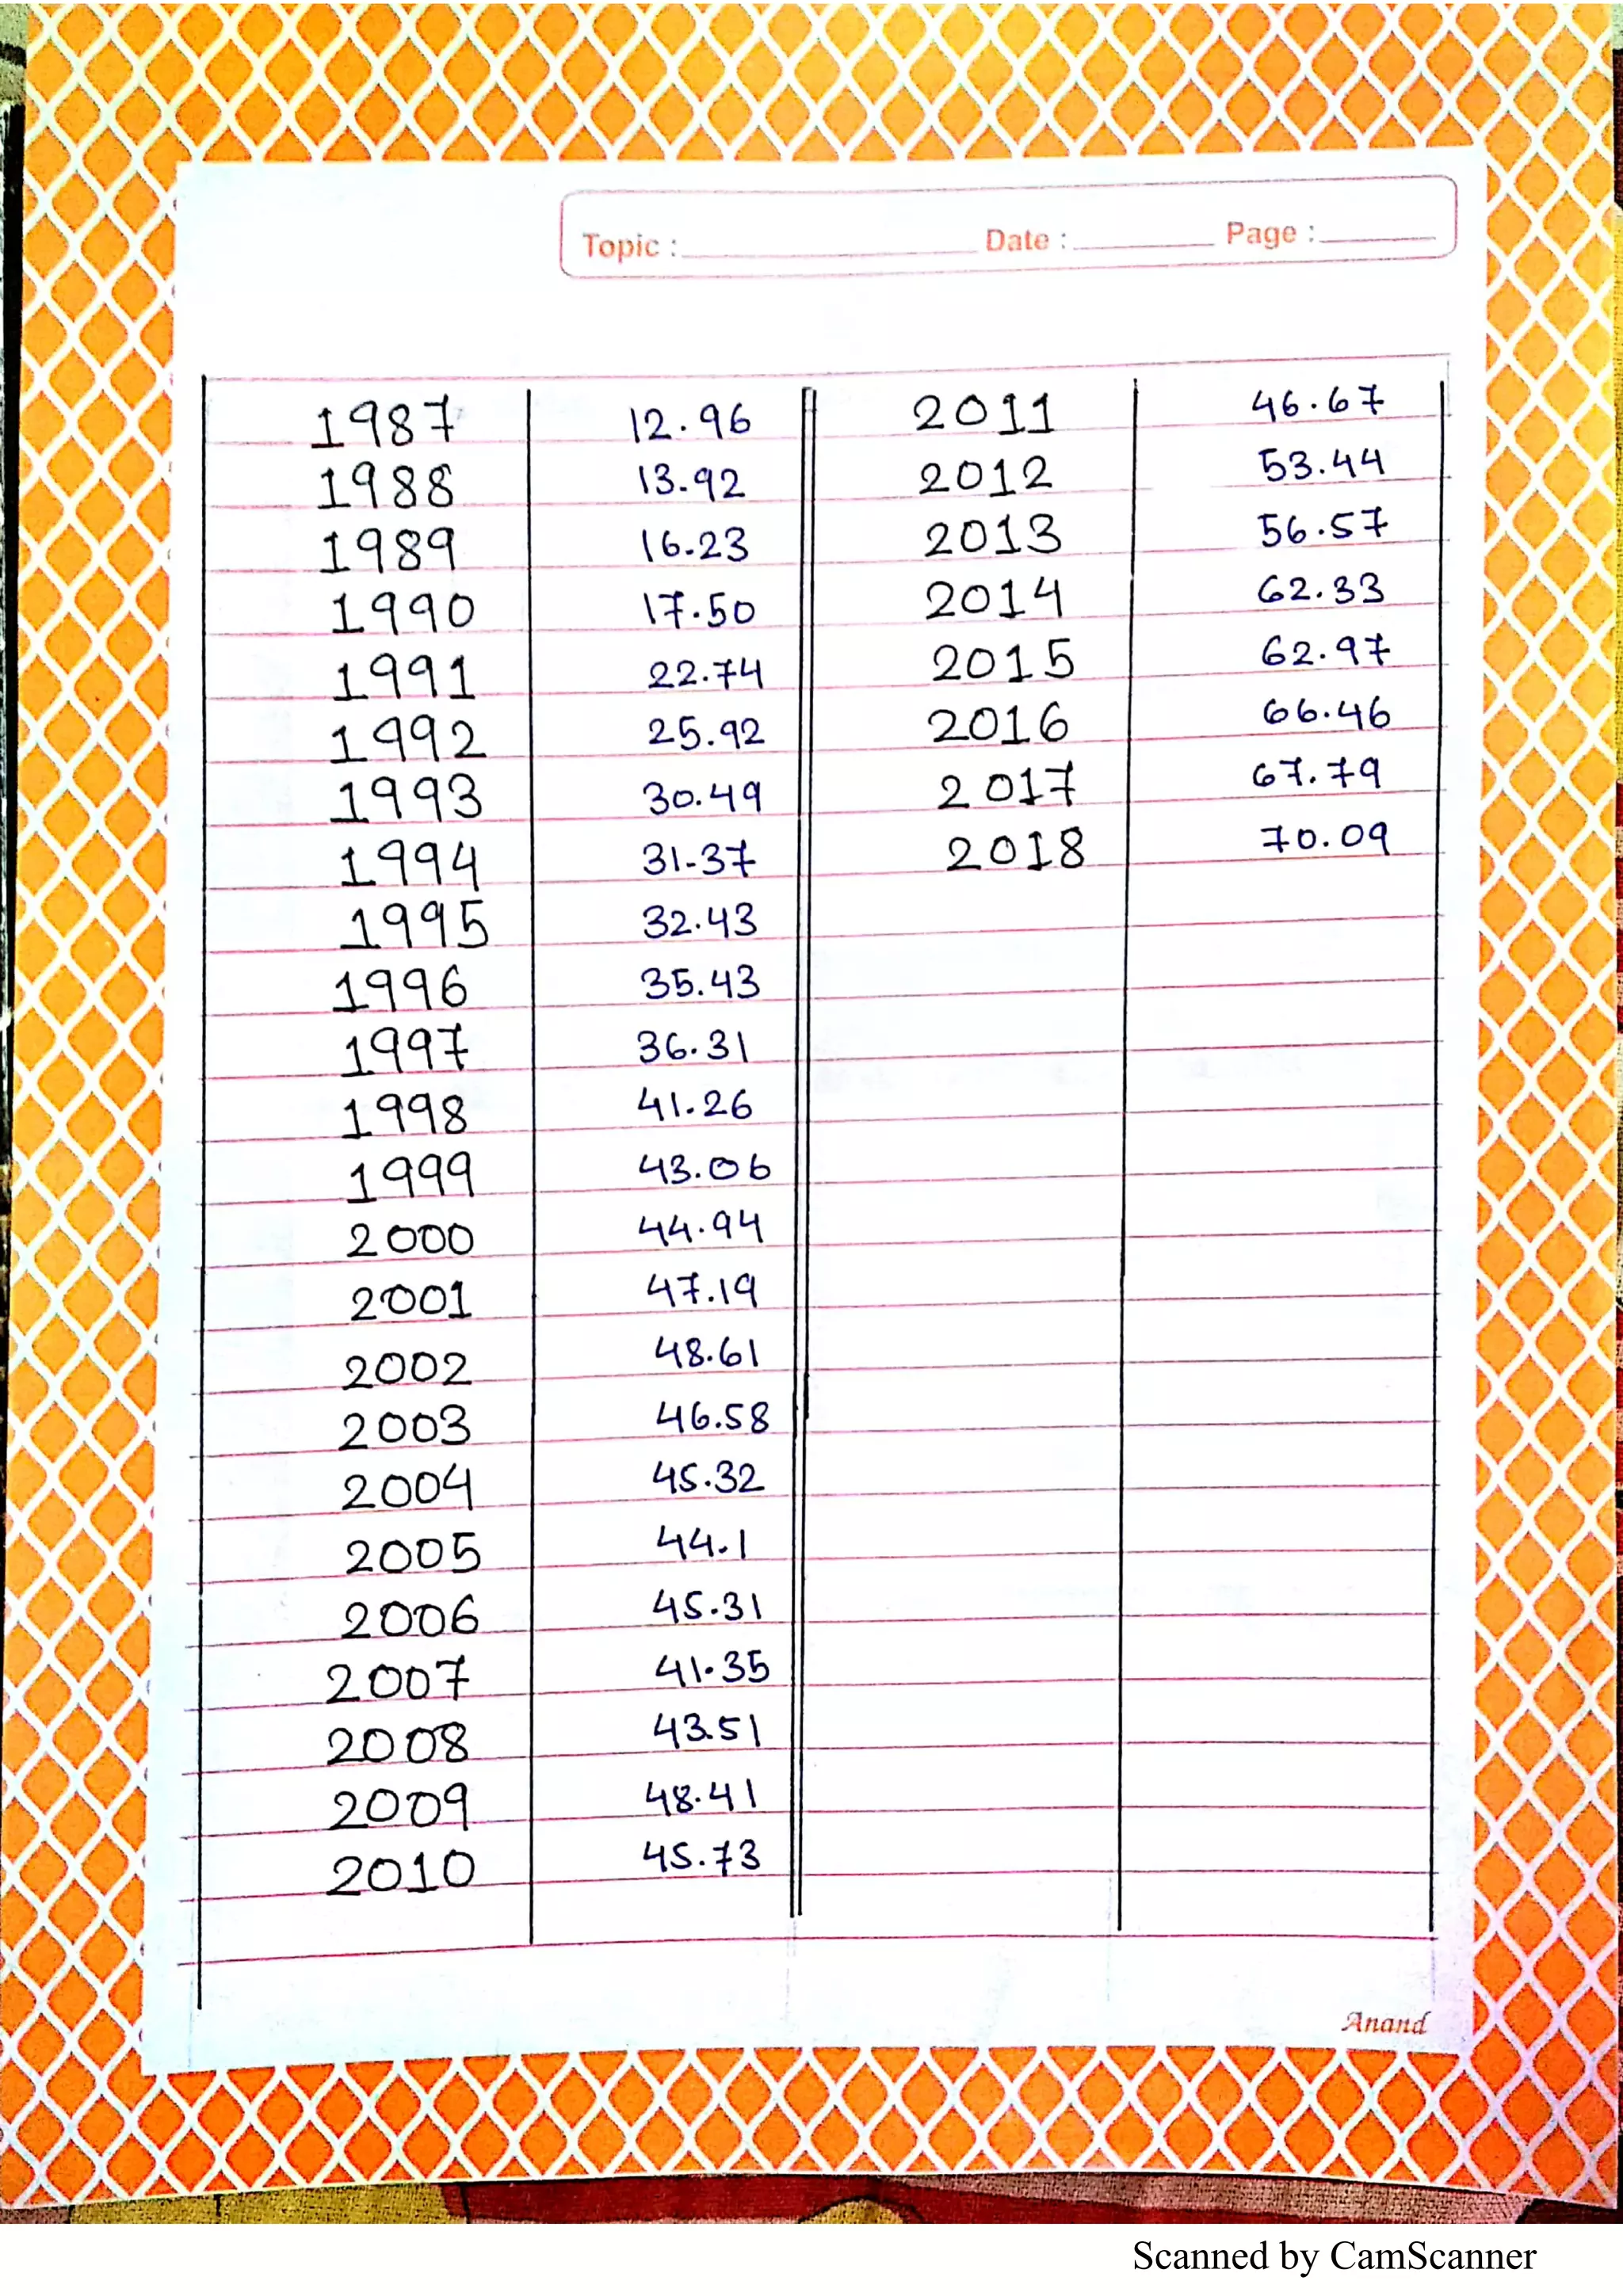 Topic : Date : Page :
1987 12.96 2011 46.67
1988 13.92 2012 53.44
1989 16.23 2013 56.57
1990 17.50 2014 62.33
1991 22.74 2015 62.97
1992 25.92 2016 66.46
1993 30.49 2017 67.79
1994 31-37 2018 70.09
1995 32.43
1996 35.43
1997 36.31
1998 41.26
1999 43.06
2000 44.94
2001 47.19
2002 48.61
2003 46.58
2004 45.32
2005 44.1
2006 45.31
2007 41.35
2008 43.51
2009 48.41
2010 45.73
Anand
Scanned by CamScanner